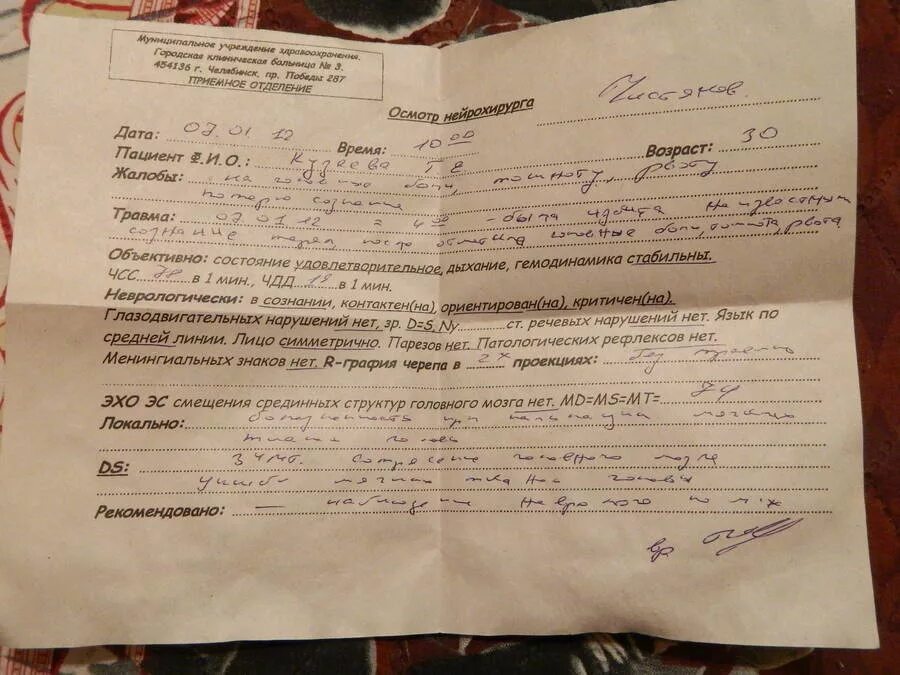 Муниципальное учреждение здравоохранения.
Городская клиническая больница № 3.
454136 г. Челябинск, пр. Победы 287
ПРИЕМНОЕ ОТДЕЛЕНИЕ
Осмотр нейрохирурга
Дата: 07.01.12 Время: 10 00 Возраст: 30
Пациент Ф.И.О.: Кузаева Т Е
Жалобы: на головные боли, тошноту, рвоту
потерю сознания
Травма: 07.01.12 = 4 00 - была избита неизвестным
сознание теряла после отметила головные боли, тошнота, рвота
Объективно: состояние удовлетворительное, дыхание, гемодинамика стабильны.
ЧСС 78 в 1 мин., ЧДД 18 в 1 мин.
Неврологически: в сознании, контактен(на), ориентирован(на), критичен(на).
Глазодвигательных нарушений нет, зр. D=S, Ny ст. речевых нарушений нет. Язык по
средней линии. Лицо симметрично. Парезов нет. Патологических рефлексов нет.
Менингиальных знаков нет. R-графия черепа в 2х проекциях: без
ЭХО ЭС смещения срединных структур головного мозга нет. MD=MS=MT=
Локально: болезненность при пальпации мягких
тканей головы
DS: ЗЧМТ. Сотрясение головного мозга
Ушиб мягких тканей головы
Рекомендовано: — наблюдение невролога по м/ж
вр.